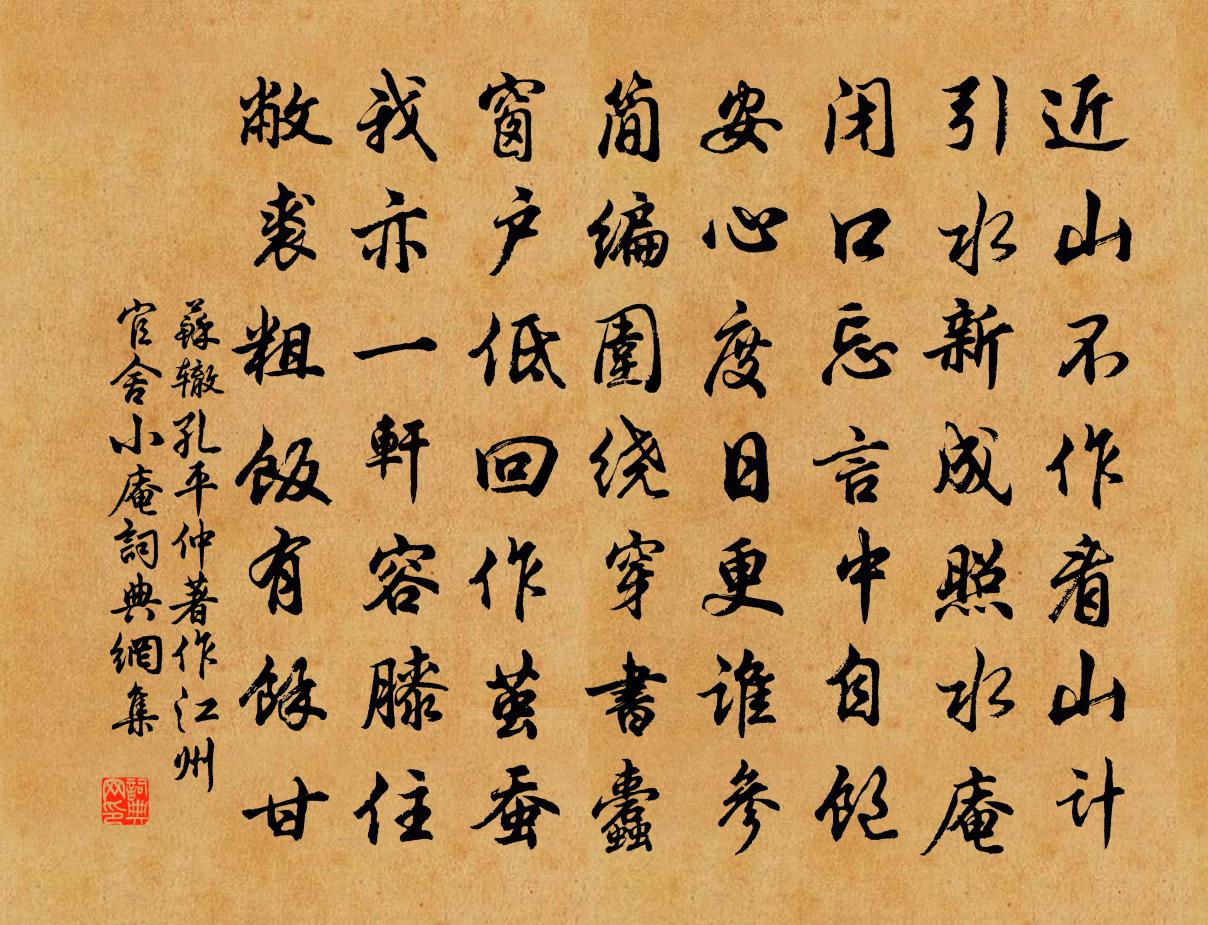 近山不作看山计
引水新成照水庵
闭口忘言中自饱
安心度日更谁参
简编围绕穿书蠹
窗户低回作茧蚕
我亦一軒容膝住
敝裘粗飯有餘甘
蘇辙孔平仲著作江州
官舍小庵詞典網集
詞典网印